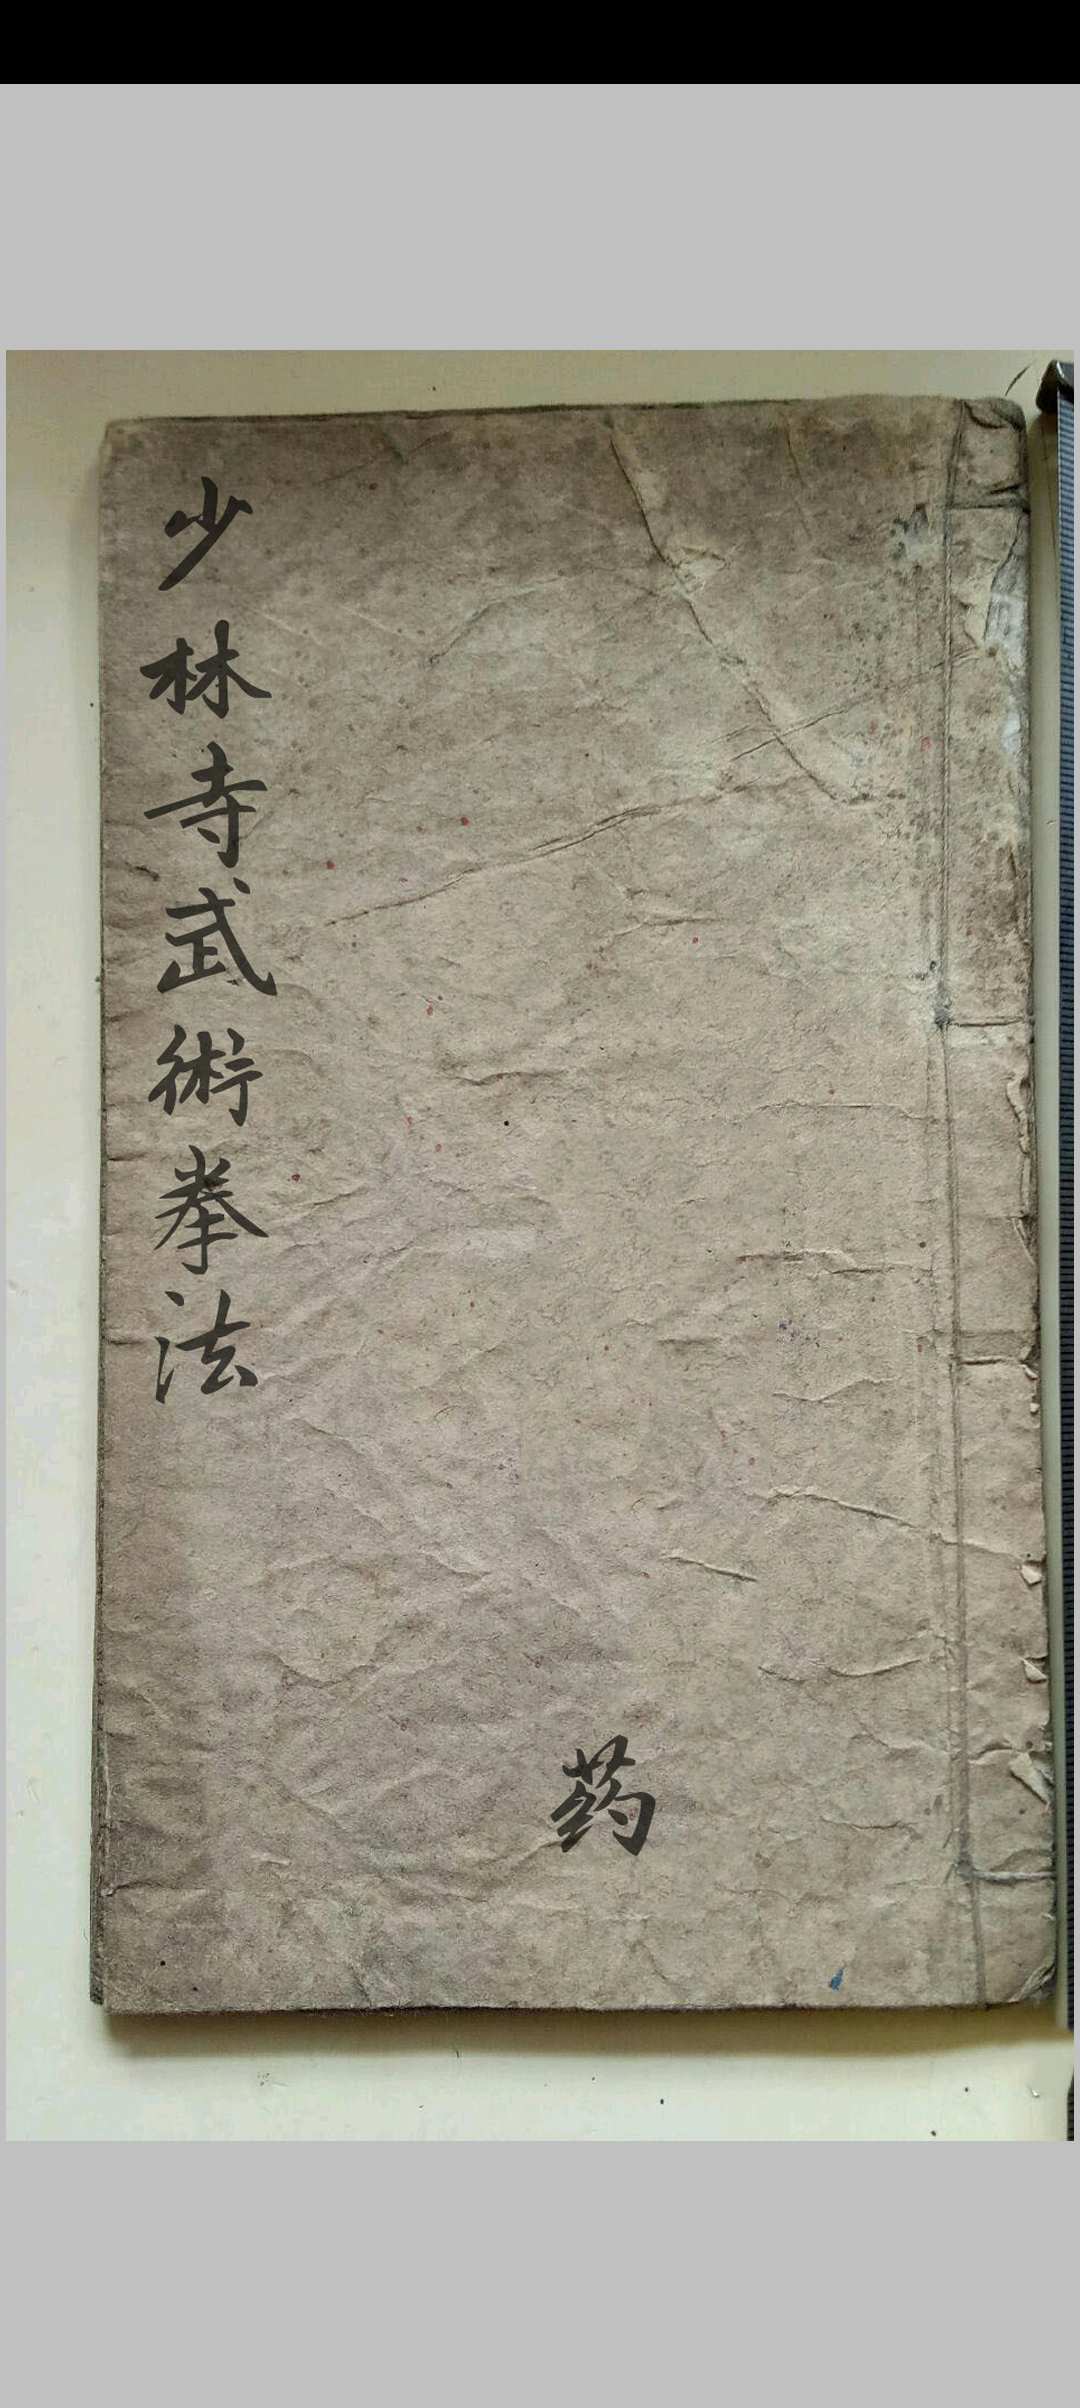 少林寺武術拳法
药